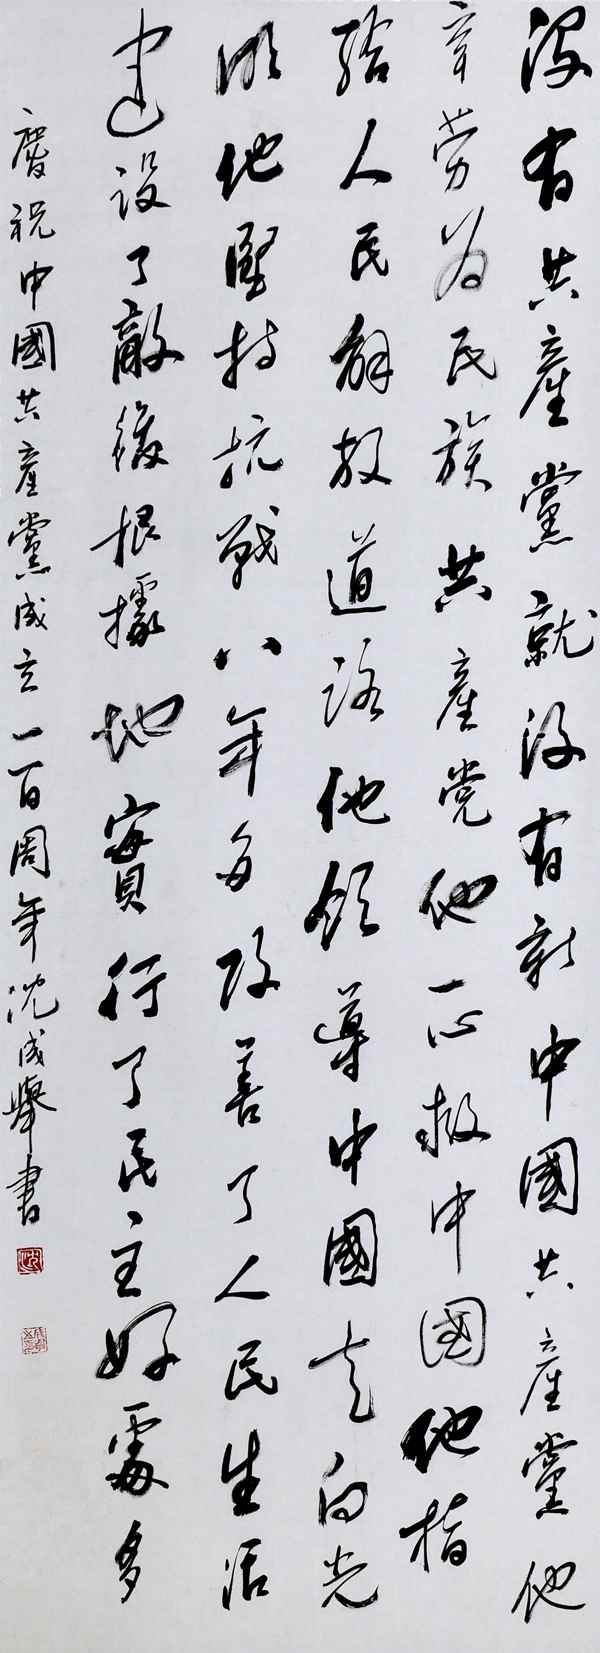 没有共產黨就没有新中國共產黨他
辛劳为民族共產党他一心救中國他指
给人民解放道路他领導中國走向光
明他堅持抗戰八年多改善了人民生活
建设了敵後根據地實行了民主好處多
慶祝中國共產黨成立一百周年沈成舉書